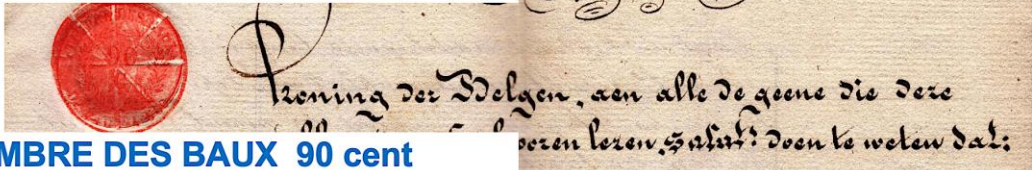 Koning der Belgen, aen alle de geene die deze
hooren lezen, salut! doen te weten dat:
MBRE DES BAUX 90 cent